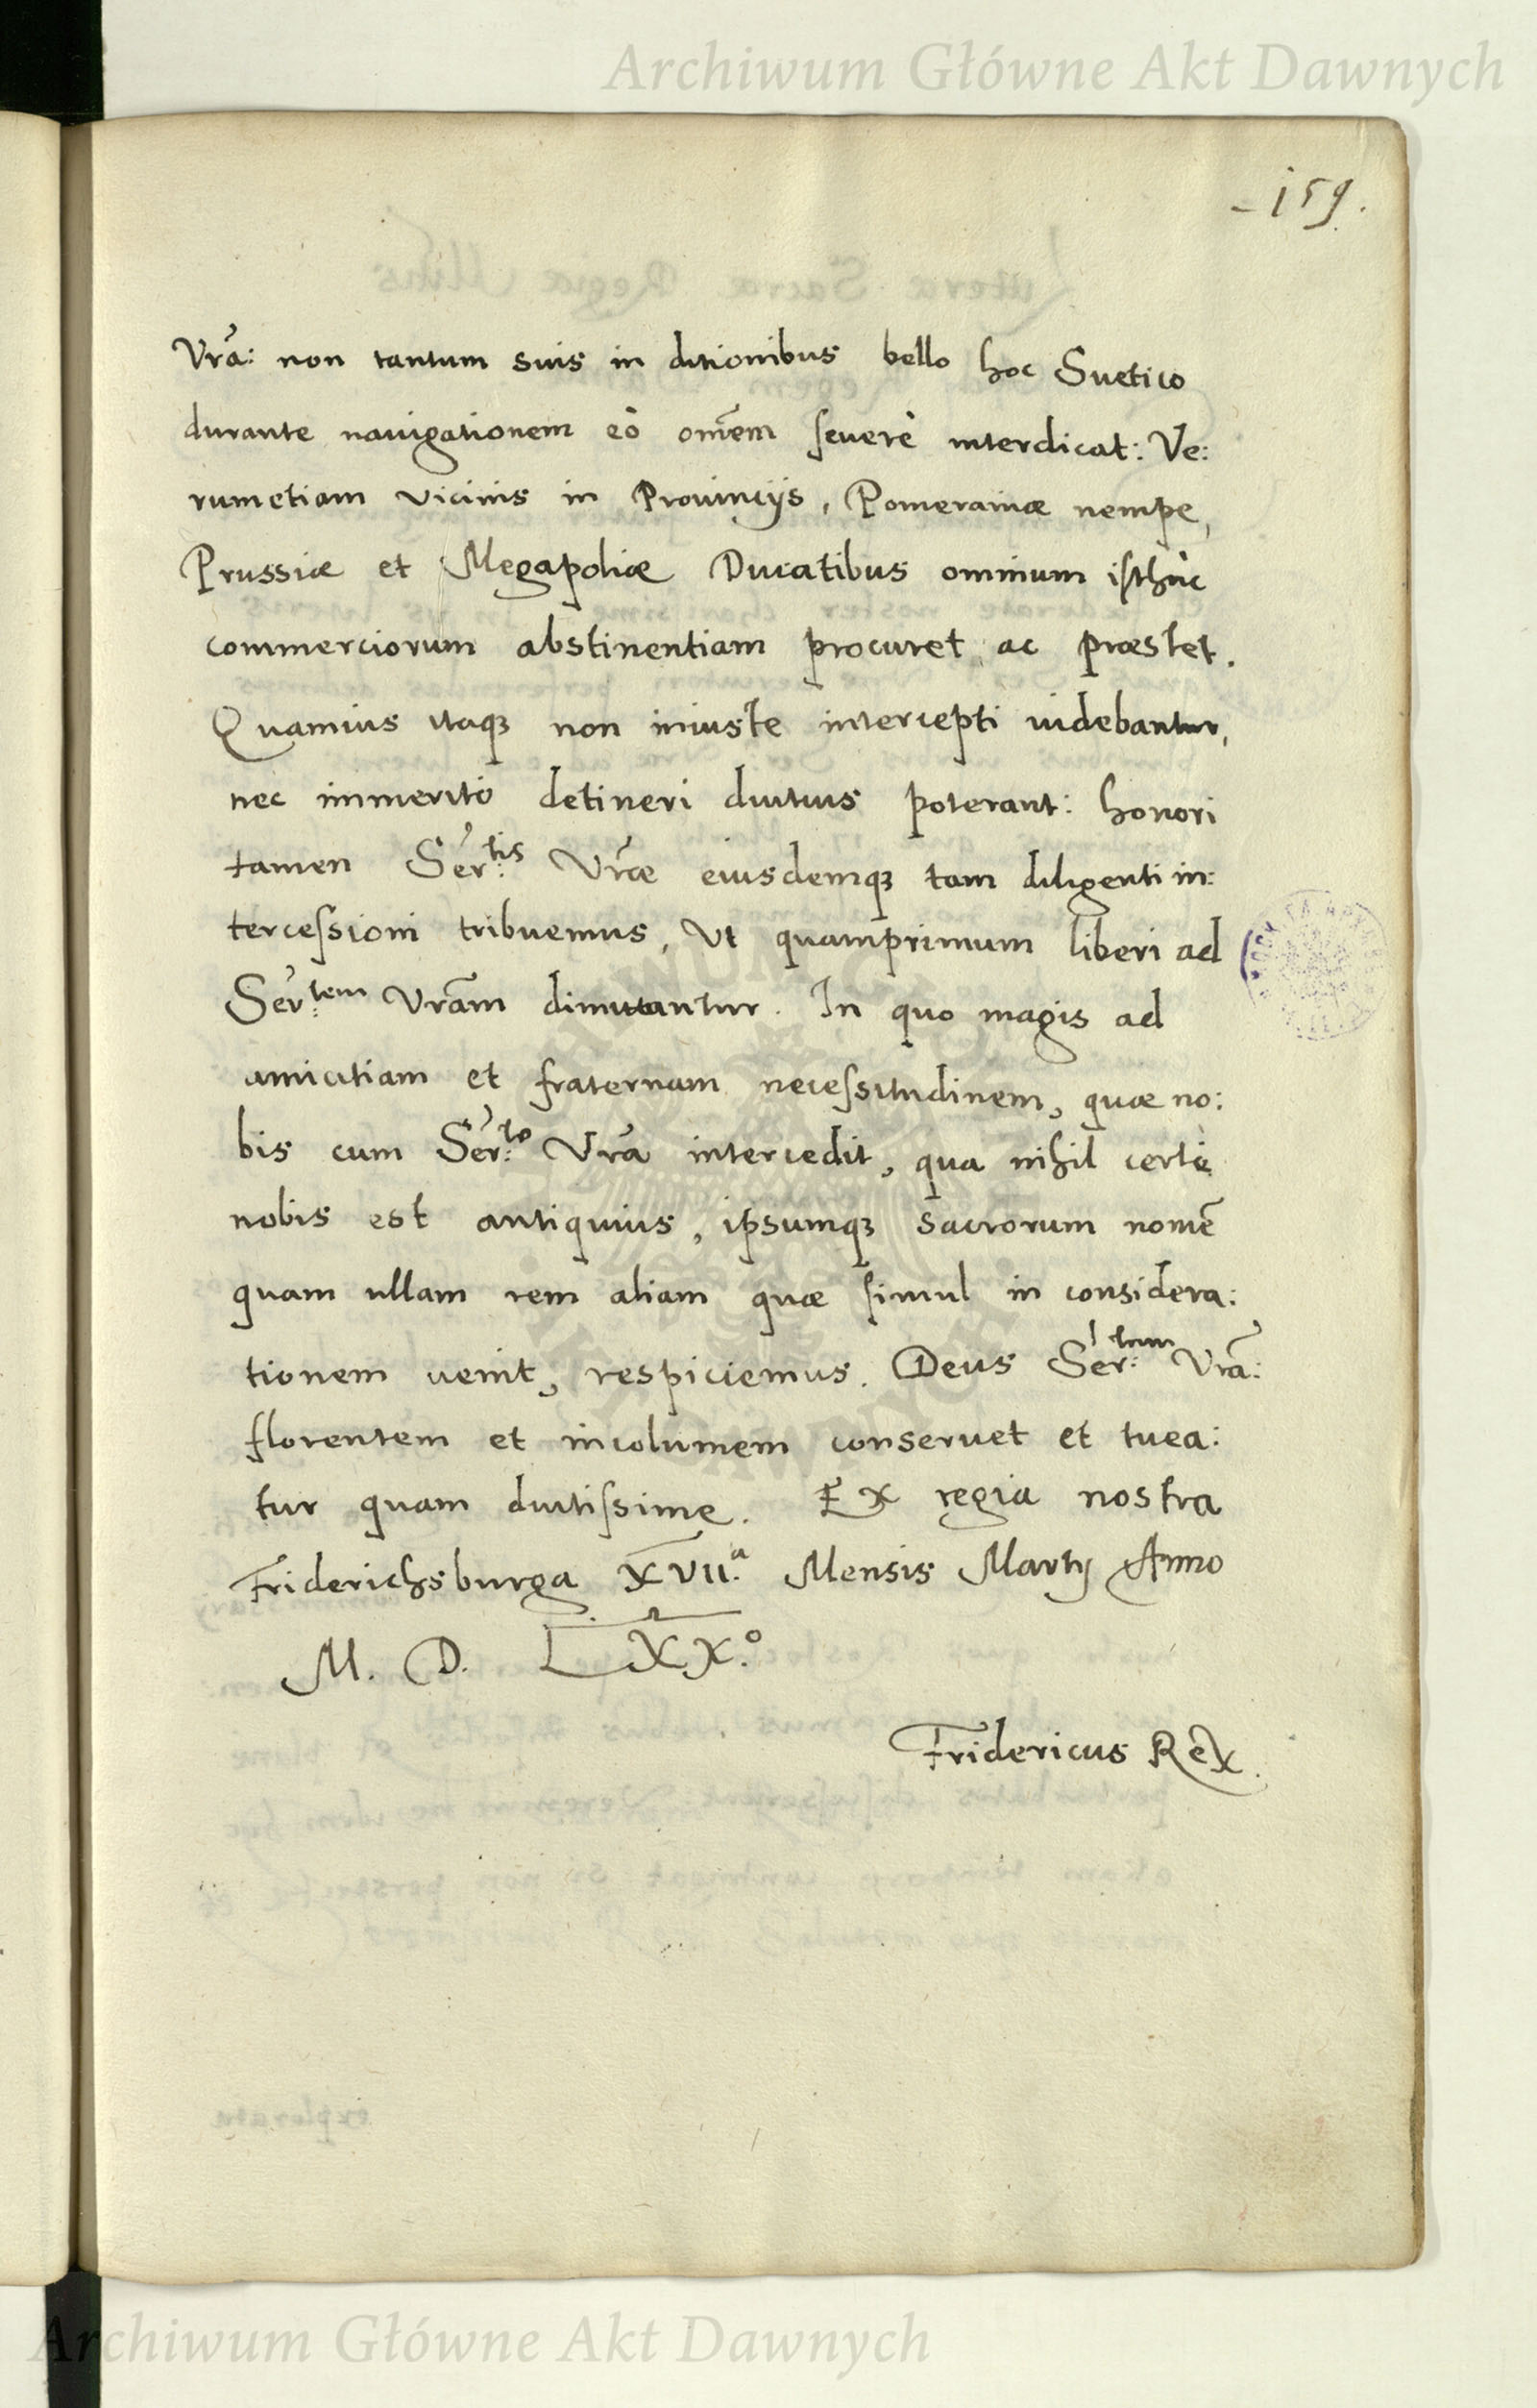 Archiwum Główne Akt Dawnych
- 159.
Vrã: non tantum suis in ditionibus bello hoc Suetico
durante nauigationem eò omẽm seuerè interdicat: Ve:
rumetiam vicinis in Prouincijs, Pomeraniæ nempe,
Prussiæ et Megapoliæ Ducatibus omnium isthùc
commerciorum abstinentiam procuret ac præstet.
Quamuis itaqȝ non iniuste intercepti uidebantur,
nec immeritò detineri diutius poterant: honori
tamen Ser:tis Vræ eiusdemqȝ tam diligenti in:
tercessioni tribuemus, Vt quamprimum liberi ad
Ser:tem Vrãm dimittantur. In quo magis ad
amicitiam et fraternam necessitudinem, quæ no:
bis cum Ser:te Vrã intercedit, qua nihil certè
nobis est antiquius, ipsumqȝ sacrorum nomẽ
quam ullam rem aliam quæ simul in considera:
tionem uenit, respiciemus. Deus Ser:tem Vrã:
florentem et incolumem conseruet et tuea:
tur quam diutissime. Ex regia nostra
Friderichsburga XVII.a Mensis Martij Anno
M. D. LXX.o
Fridericus Rex.
Archiwum Główne Akt Dawnych